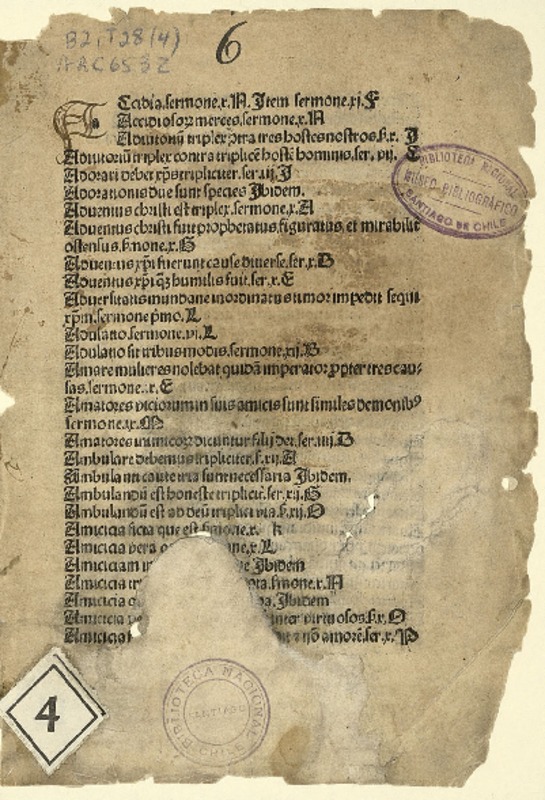 B2, T28(4)
AAC6532
6
Accidia.sermone.x.M. Item sermone.xj.F
Accidiosoꝝ merces.sermone.x.M
Adiutoriū triplex ꝯtra tres hostes nostros.ẜ.x. I
Adiutoriū triplex contra triplicē hostē hominis.ser. vij. E
Adorari debet xp̄s tripliciter.ser.iij.I
Adorationis due sunt species Ibidem.
Aduentus christi est triplex.sermone.x.A
Aduentus christi fuit prophetatus, figuratus, et mirabilit̄
ostensus.ẜmone.x.G
Aduentus xp̄i fuerunt cause diuerse.ser.x.D
Aduentus xp̄i q̄ꝫ humilis fuit.ser.x.E
Aduersitatis mundane inordinatus timor impedit sequi
xp̄m.sermone p̄mo.L
Adulatio.sermone.vj.L
Adulatio fit tribus modis.sermone.xij.B
Amare mulieres nolebat quidā imperator ꝓpter tres cau⸗
sas.sermone.x.E
Amatores viciorum in suis amicis sunt similes demonibꝰ
sermone.ix.M
Amatores inimicoꝝ dicuntur filij dei.ser.iiij.D
Ambulare debemus tripliciter.ẜ.xij.A
Ambulanti caute tria sunt necessaria Ibidem.
Ambulandū est honeste triplicit̄.ser.xij.G
Ambulandū est ad deū triplici via.ẜ.xij.O
Amicicia ficta que est ẜmone.x. K
Amicicia vera ne.x.L
Amiciciam Ibidem
Amicicia ẜmone.x.M
Amicicia Ibidem
Amicicia inter virtuosos.ẜ.x.O
Amicicia amorē.ser.x.P
BIBLIOTECA NACIONAL
MUSEO BIBLIOGRÁFICO
SANTIAGO DE CHILE
BIBLIOTECA NACIONAL
SANTIAGO
CHILE
4